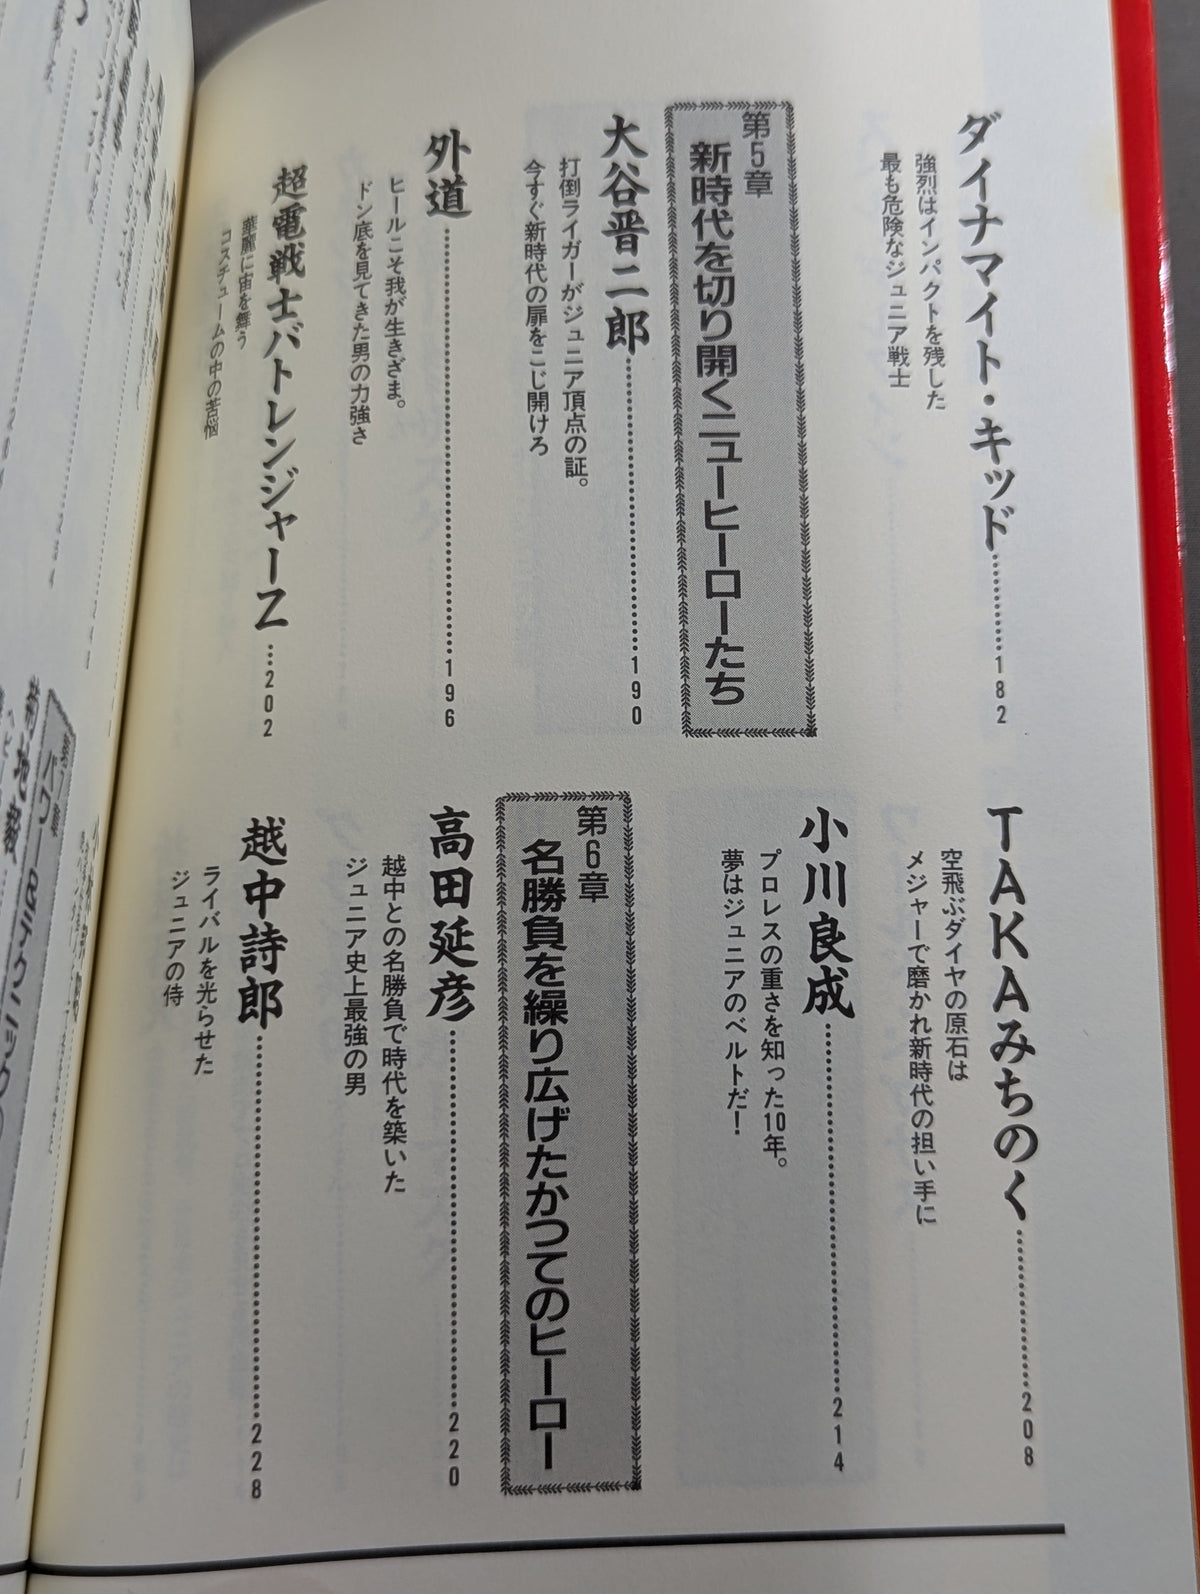 ダイナマイト・キッド……………182
強烈はインパクトを残した
最も危険なジュニア戦士
第5章
新時代を切り開くニューヒーローたち
大谷晋二郎……………190
打倒ライガーがジュニア頂点の証。
今すぐ新時代の扉をこじ開けろ
外道……………196
ヒールこそ我が生きざま。
ドン底を見てきた男の力強さ
超電戦士バトレンジャーZ…202
華麗に宙を舞う
コスチュームの中の苦悩
TAKAみちのく……………208
空飛ぶダイヤの原石は
メジャーで磨かれ新時代の担い手に
小川良成……………214
プロレスの重さを知った10年。
夢はジュニアのベルトだ！
第6章
名勝負を繰り広げたかつてのヒーロー
高田延彦……………220
越中との名勝負で時代を築いた
ジュニア史上最強の男
越中詩郎……………228
ライバルを光らせた
ジュニアの侍